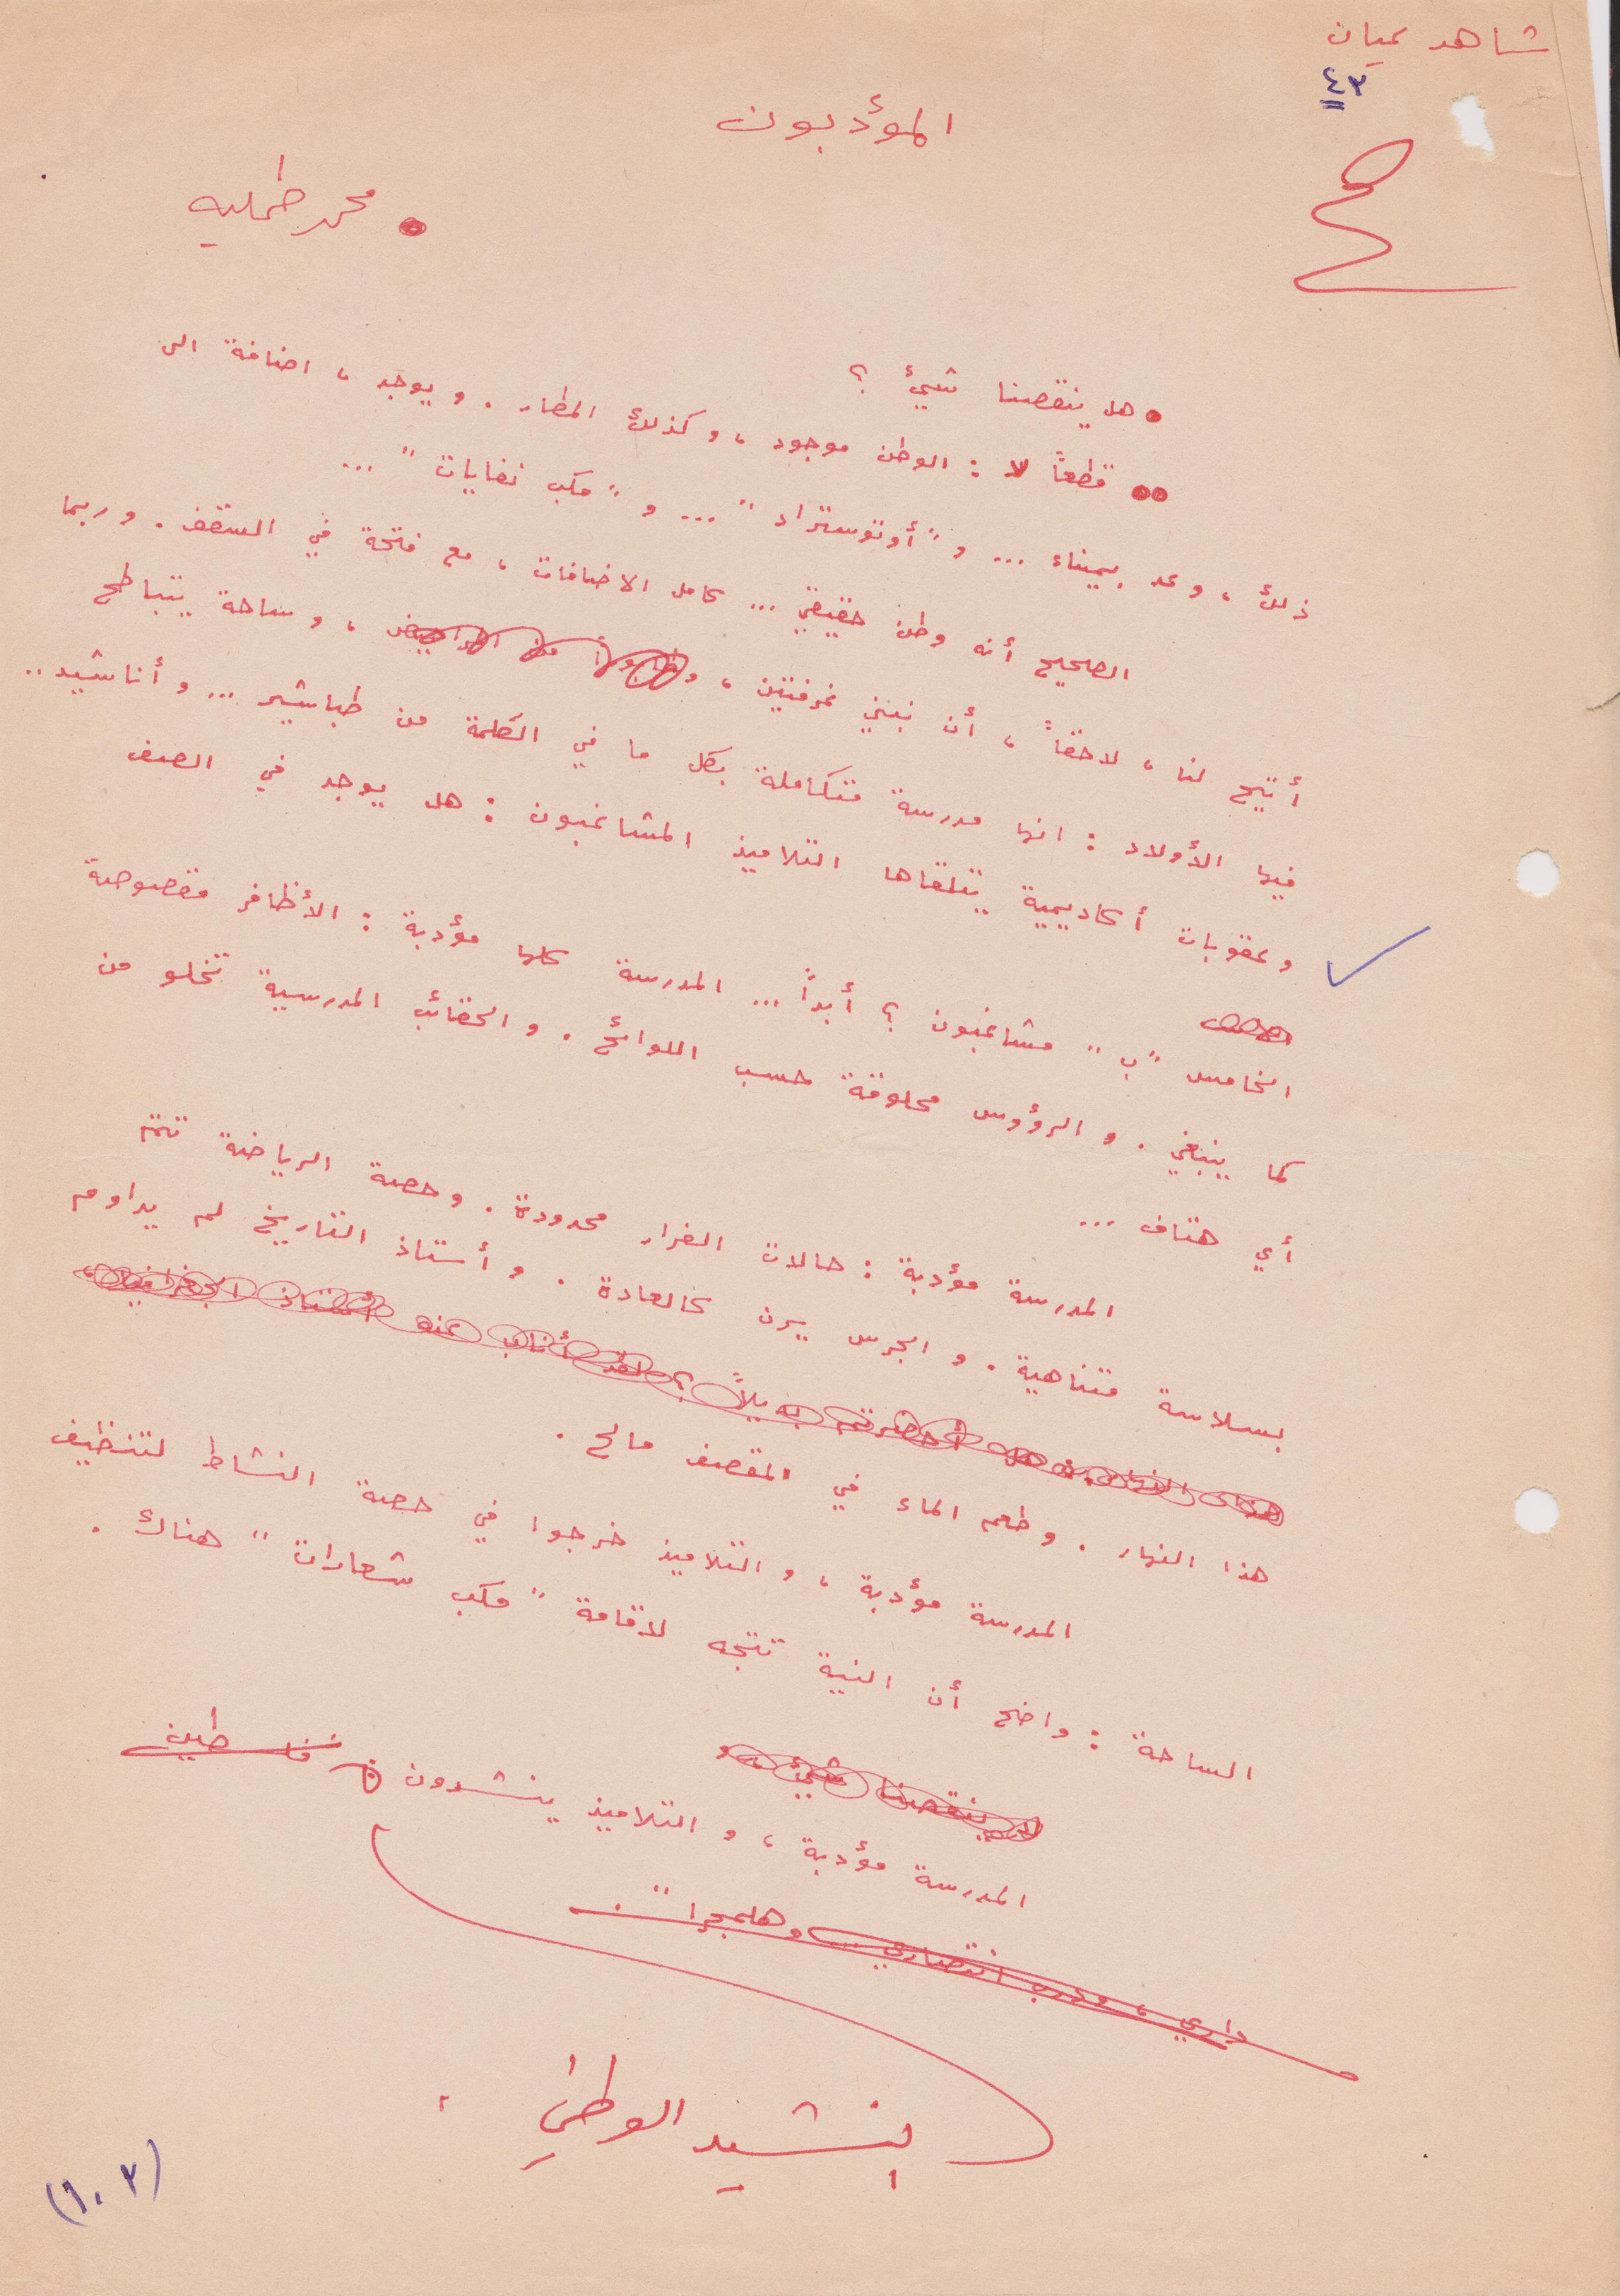 شاهد عيان
٤٣
المؤدبون
• محمد طمليه
• هل ينقصنا شيئ ؟
•• قطعاً لا : الوطن موجود ، وكذلك المطار . ويوجد ، اضافة الى
ذلك ، وعد بميناء ... و "أوتوستراد" ... و "مكب نفايات" ...
الصحيح أنه وطن حقيقي ... كامل الاضافات ، مع فتحة في السقف . وربما
أتيح لنا ، لاحقاً ، أن نبني غرفتين ، ، وساحة يتباطح
فيها الأولاد : انها مدرسة متكاملة بكل ما في الكلمة من طباشير ... وأناشيد ..
وعقوبات أكاديمية يتلقاها التلاميذ المشاغبون : هل يوجد في الصف
الخامس "ب" مشاغبون ؟ أبداً ... المدرسة كلها مؤدبة : الأظافر مقصوصة
كما ينبغي . والرؤوس محلوقة حسب اللوائح . والحقائب المدرسية تخلو من
أي هتاف ...
المدرسة مؤدبة : حالات الفرار محدودة . وحصة الرياضة تتم
بسلاسة متناهية . والجرس يرن كالعادة . وأستاذ التاريخ لم يداوم
هذا النهار . هل أحضرتم بديلاً ؟ لقد أناب عنه أستاذ الجغرافيا
هذا النهار . وطعم الماء في المقصف مالح .
المدرسة مؤدبة ، والتلاميذ خرجوا في حصة النشاط لتنظيف
الساحة : واضح أن النية تتجه لاقامة "مكب شعارات" هناك .
لا ينقصنا شيئ
المدرسة مؤدبة ، والتلاميذ ينشدون فلسطين
داري ، ودرب انتصاري ... وهلمجرا" .
النشيد الوطني
(١٠٢)